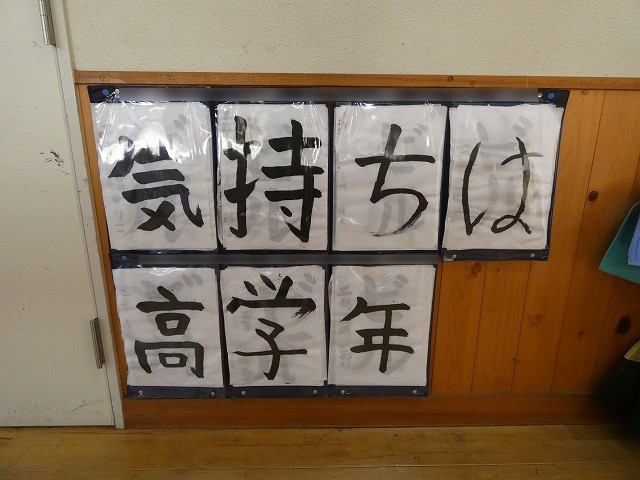 気持ちは
高学年